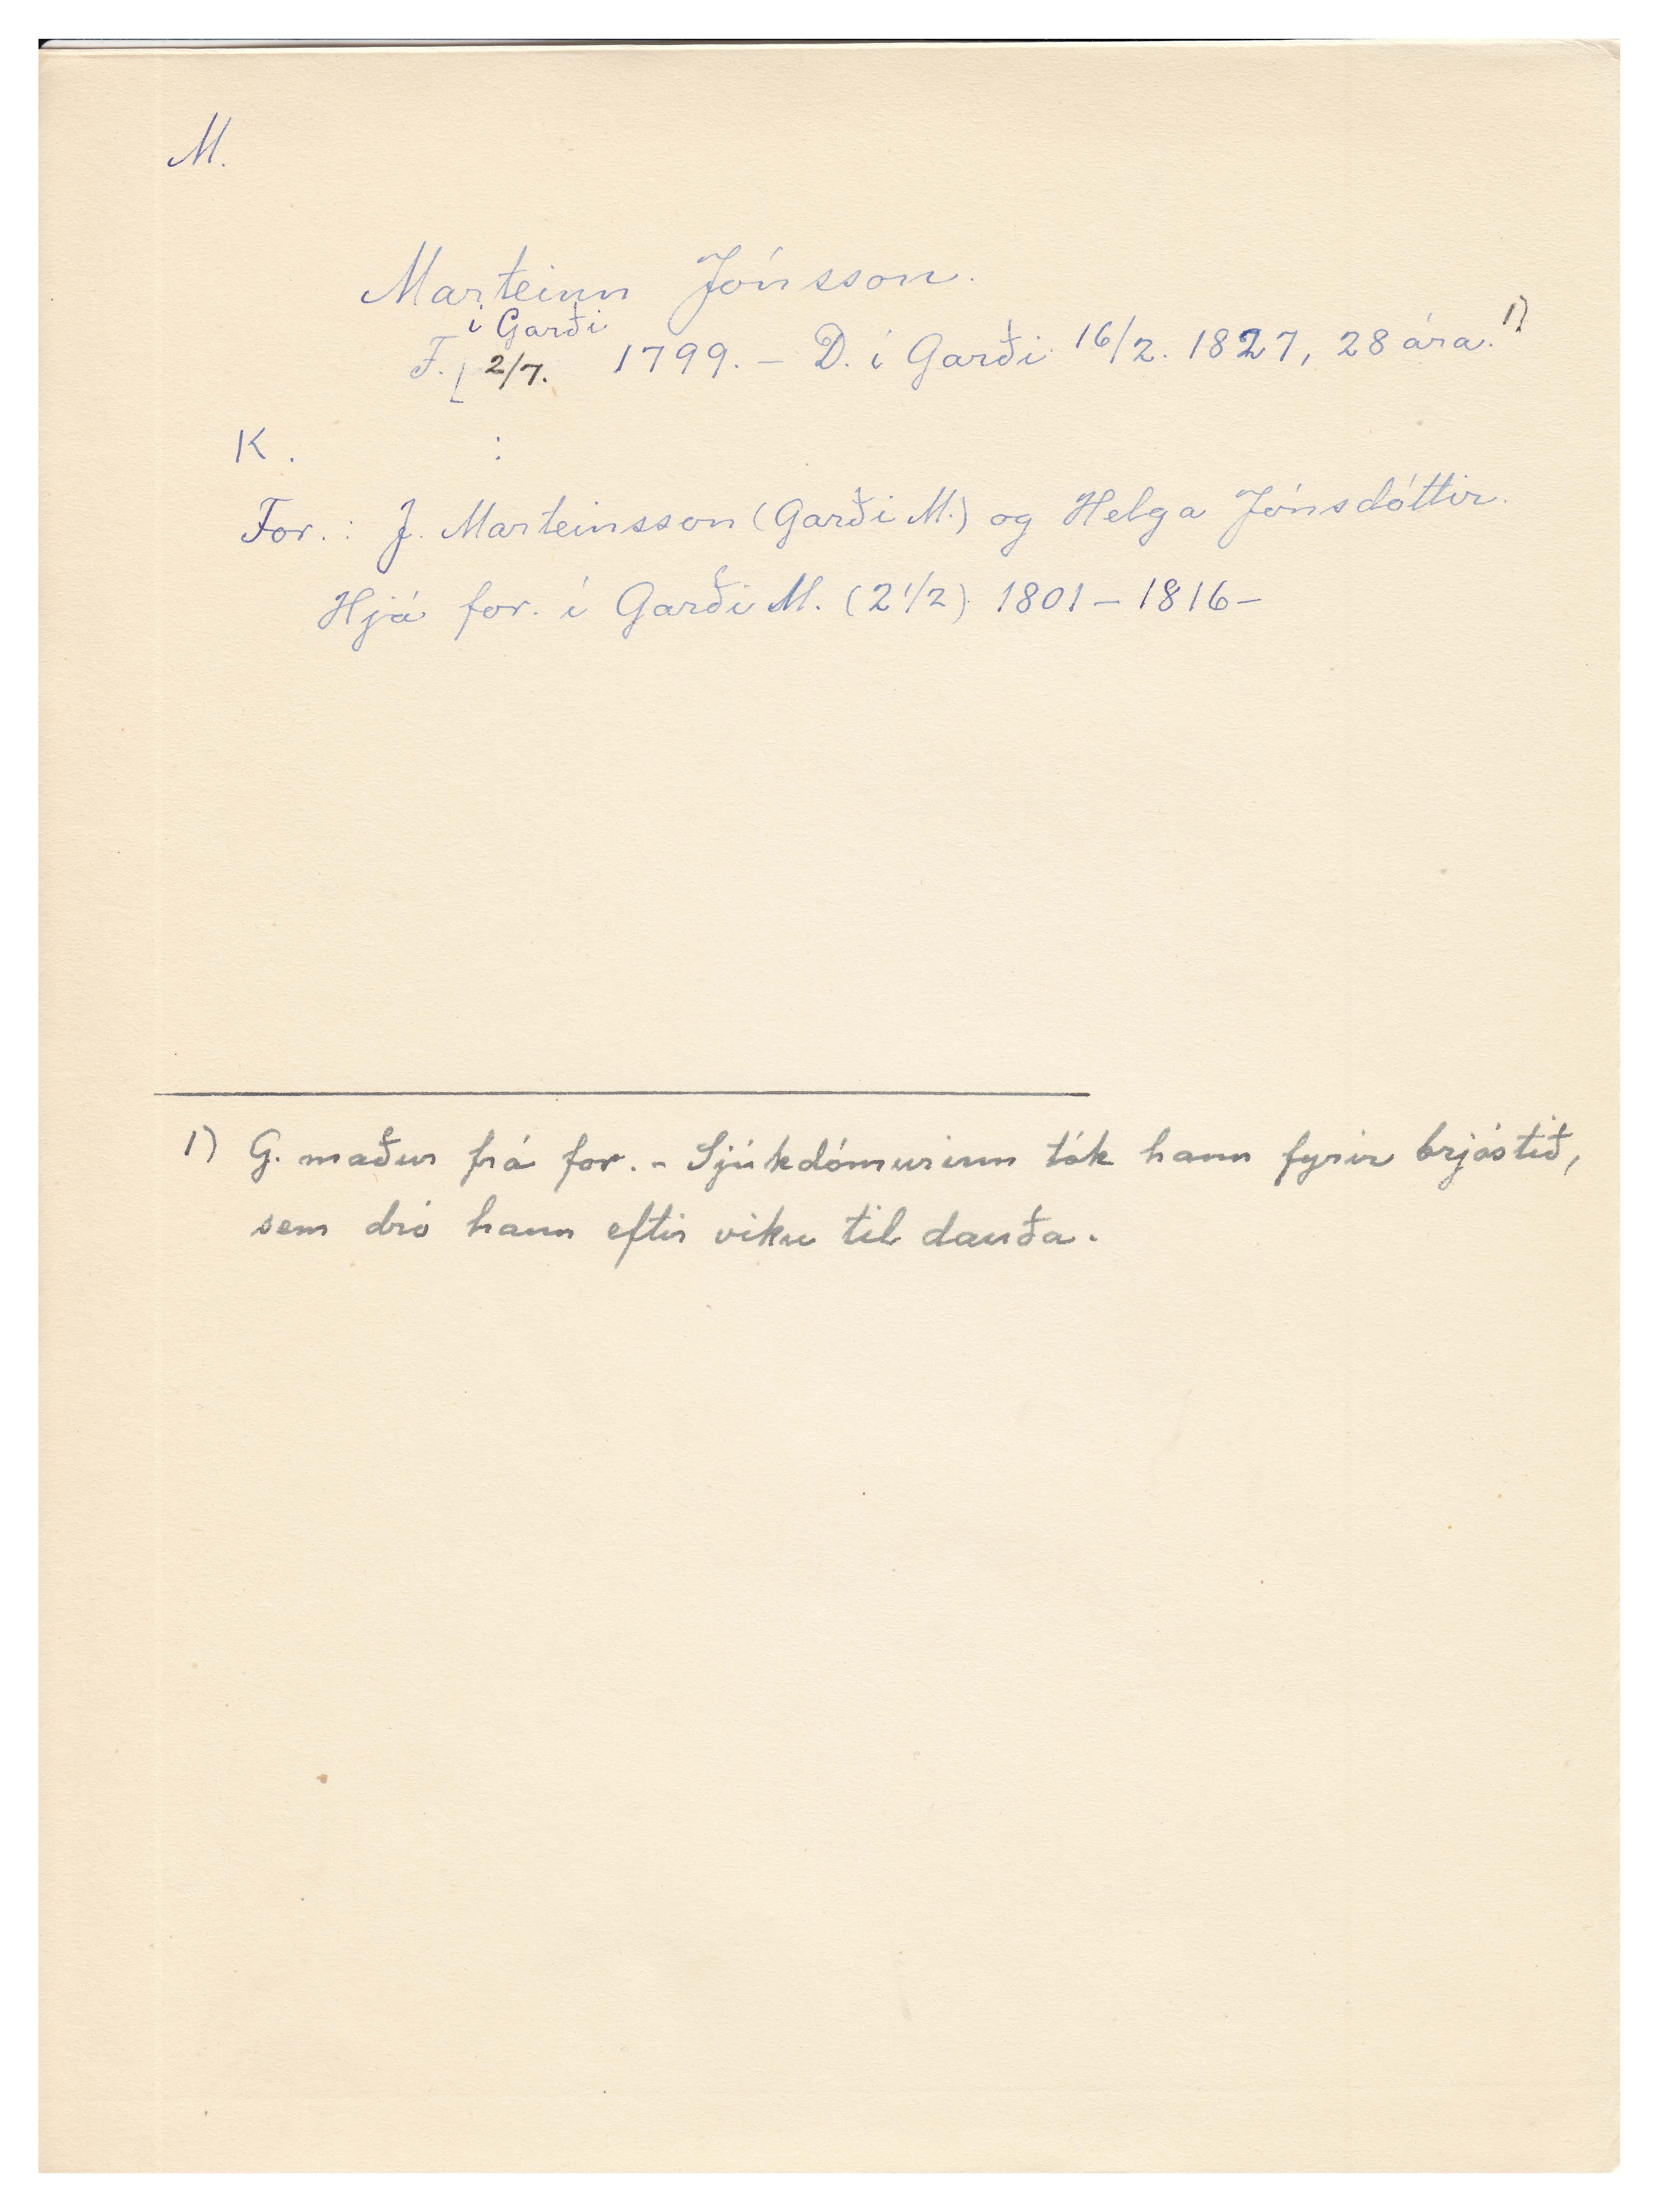 M.
Marteinn Jónsson.
í Garði
F. 2/7. 1799. – D. í Garði 16/2. 1827, 28 ára. 1)
K. :
For.: J. Marteinsson (Garði M.) og Helga Jónsdóttir.
Hjá for. í Garði M. (2 1/2) 1801 – 1816 –
1) G. maður frá for. - Sjúkdómurinn tók hann fyrir brjóstið,
sem dró hann eftir viku til dauða.